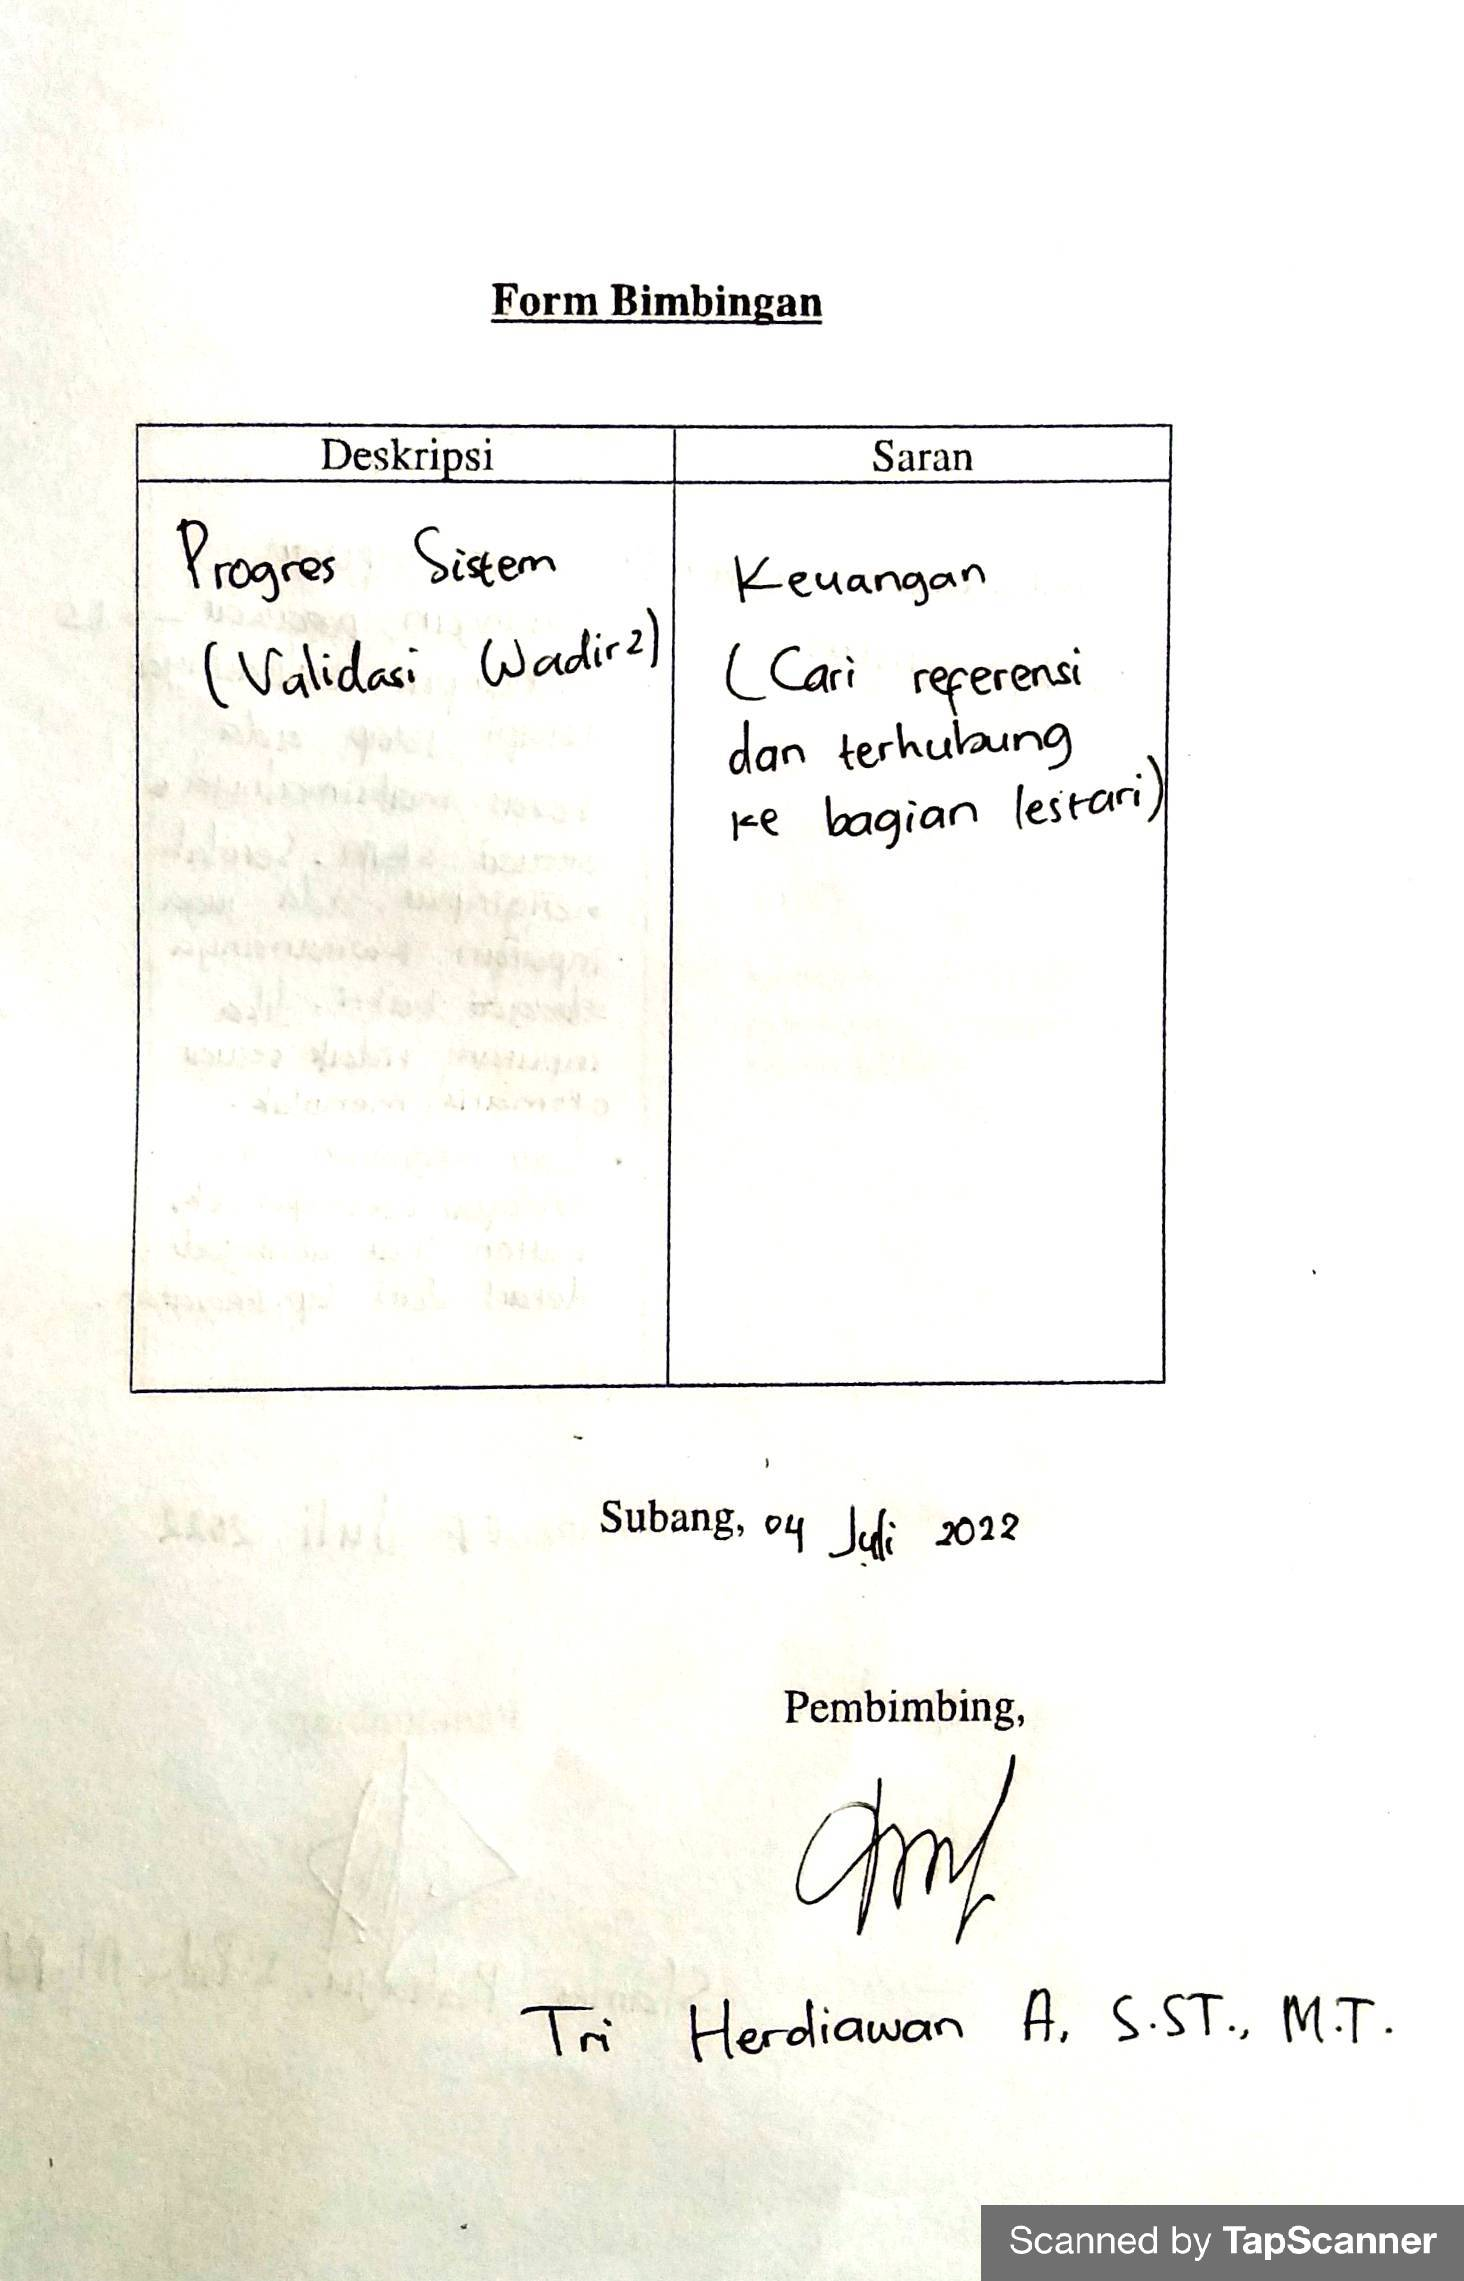 Form Bimbingan
Deskripsi
Saran
Progres Sistem
(Validasi Wadir 2)
Keuangan
(Cari referensi
dan terhubung
ke bagian lestari)
Subang, 04 Juli 2022
Pembimbing,
Tri Herdiawan A, S.ST., M.T.
Scanned by TapScanner